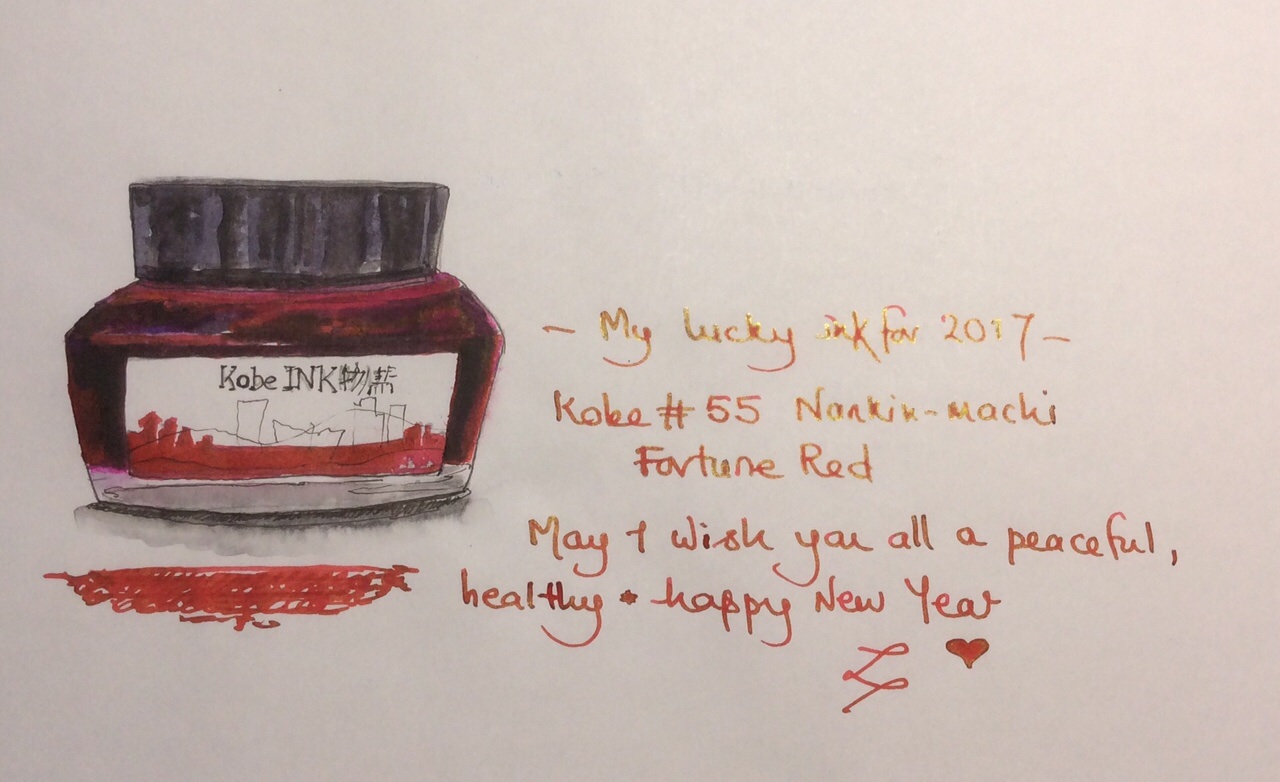 Kobe INK物
- My lucky ink for 2017 -
Kobe # 55 Nankin-machi
Fortune Red
May I wish you all a peaceful,
healthy * happy New Year